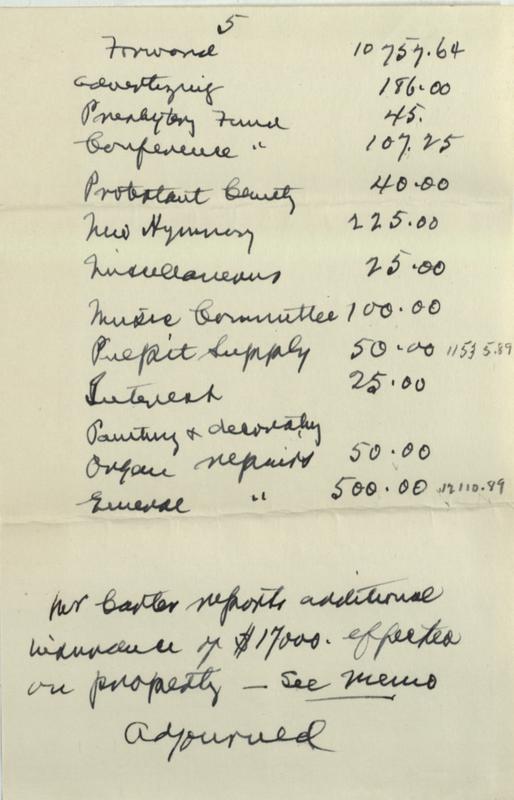 5
Forward 10757.64
Advertizing 186.00
Presbytery Fund 45.
Conference " 107.25
Protestant 40.00
New Hymnary 225.00
Miscellaneous 25.00
Music Committee 100.00
Pulpit Supply 50.00 11535.89
Interest 25.00
Painting & decorating
Organ repairs 50.00
General " 500.00 12110.89
Mr Carter reports additional
insurance of $17000. effected
on property — See Memo
Adjourned